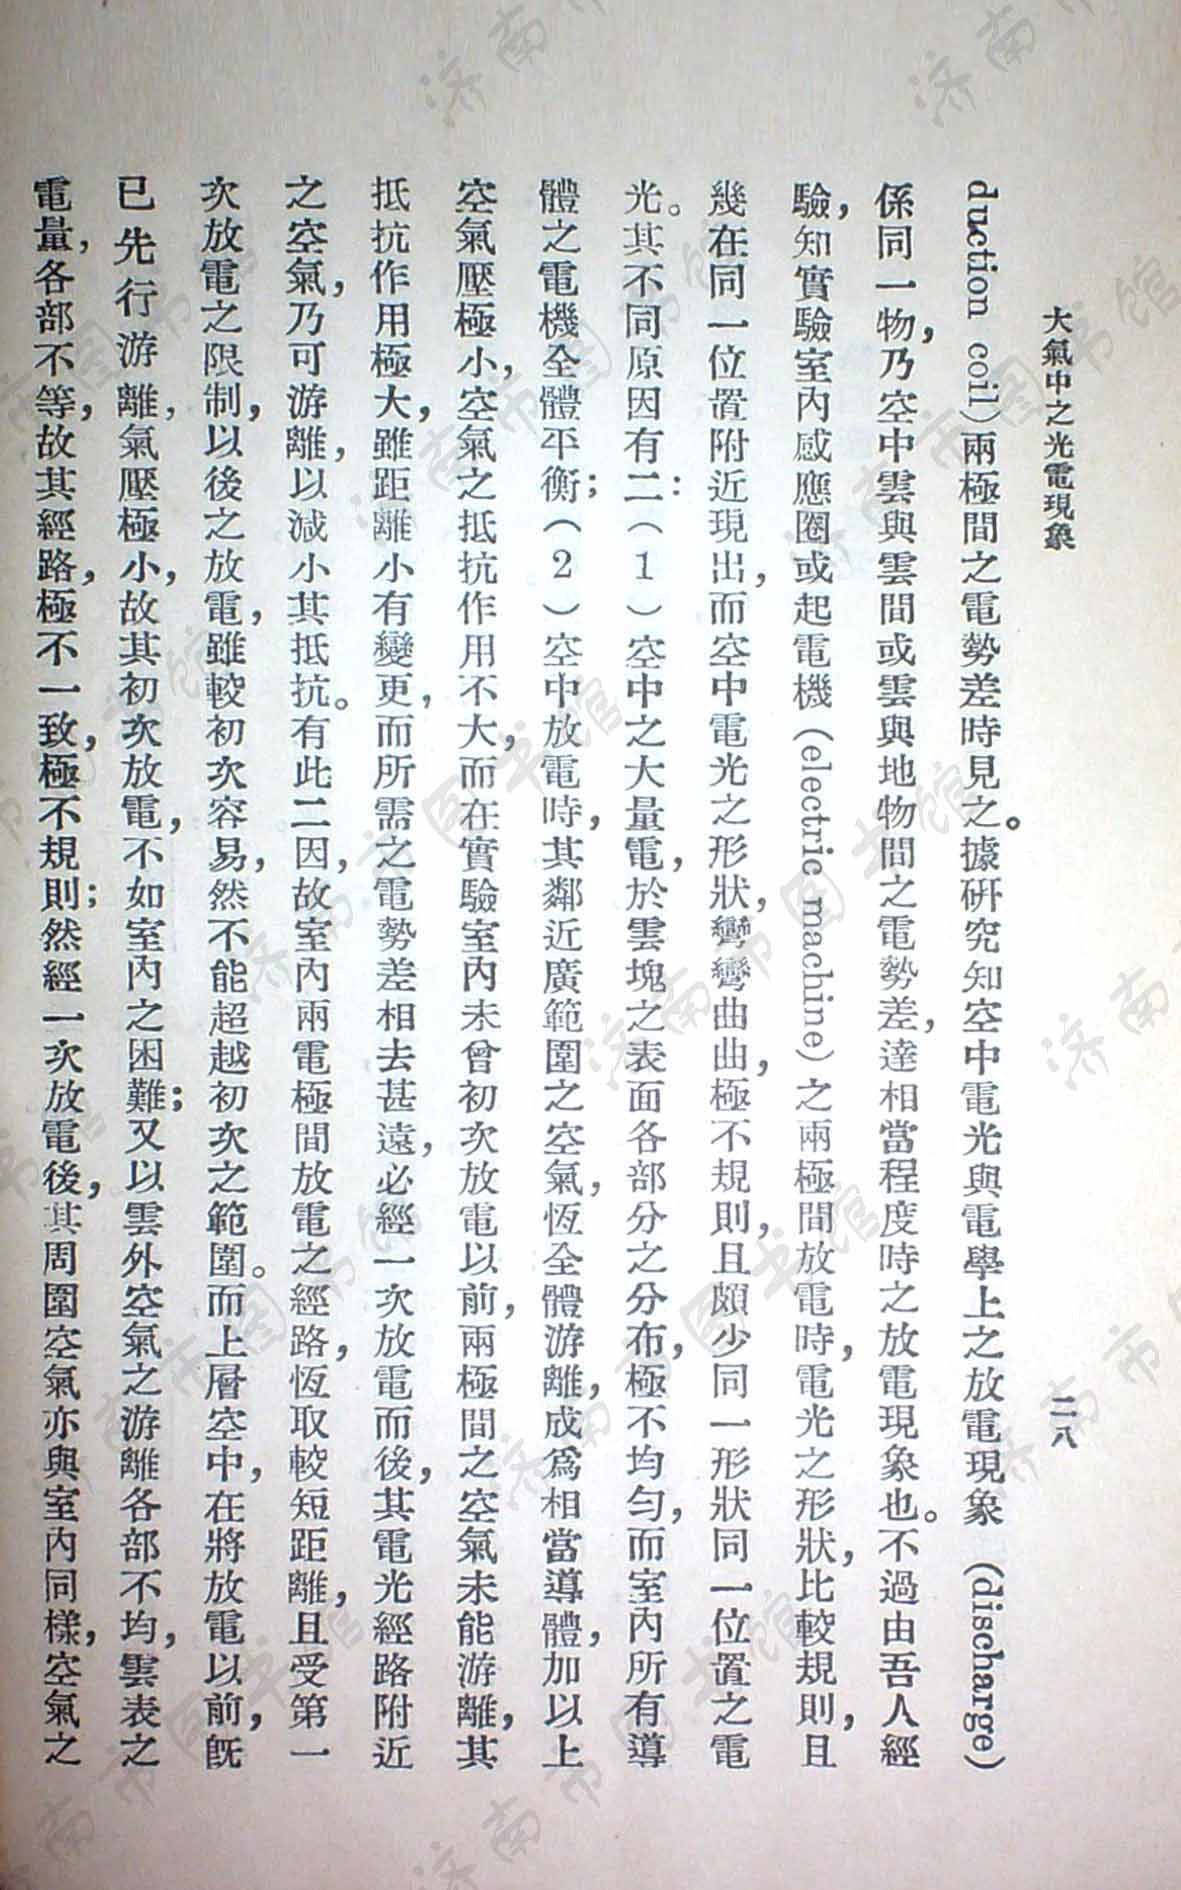 大氣中之光電現象
二八
duction coil)兩極間之電勢差時見之。據研究知空中電光與電學上之放電現象 (discharge)
係同一物,乃空中雲與雲間或雲與地物間之電勢差,達相當程度時之放電現象也。不過由吾人經
驗,知實驗室內感應圈或起電機(electric machine)之兩極間放電時,電光之形狀,比較規則,且
幾在同一位置附近現出,而空中電光之形狀,彎彎曲曲,極不規則,且頗少同一形狀同一位置之電
光。其不同原因有二:(1)空中之大量電,於雲塊之表面各部分之分布,極不均勻,而室內所有導
體之電機全體平衡;(2)空中放電時,其鄰近廣範圍之空氣,恆全體游離,成爲相當導體,加以上
空氣壓極小,空氣之抵抗作用不大,而在實驗室內未曾初次放電以前,兩極間之空氣未能游離,其
抵抗作用極大,雖距離小有變更,而所需之電勢差相去甚遠,必經一次放電而後,其電光經路附近
之空氣,乃可游離,以減小其抵抗。有此二因,故室內兩電極間放電之經路,恆取較短距離,且受第一
次放電之限制,以後之放電,雖較初次容易,然不能超越初次之範圍。而上層空中,在將放電以前,旣
已先行游離,氣壓極小,故其初次放電,不如室內之困難;又以雲外空氣之游離各部不均,雲表之
電量,各部不等,故其經路,極不一致,極不規則;然經一次放電後,其周圍空氣亦與室內同樣,空氣之
济南市图书馆